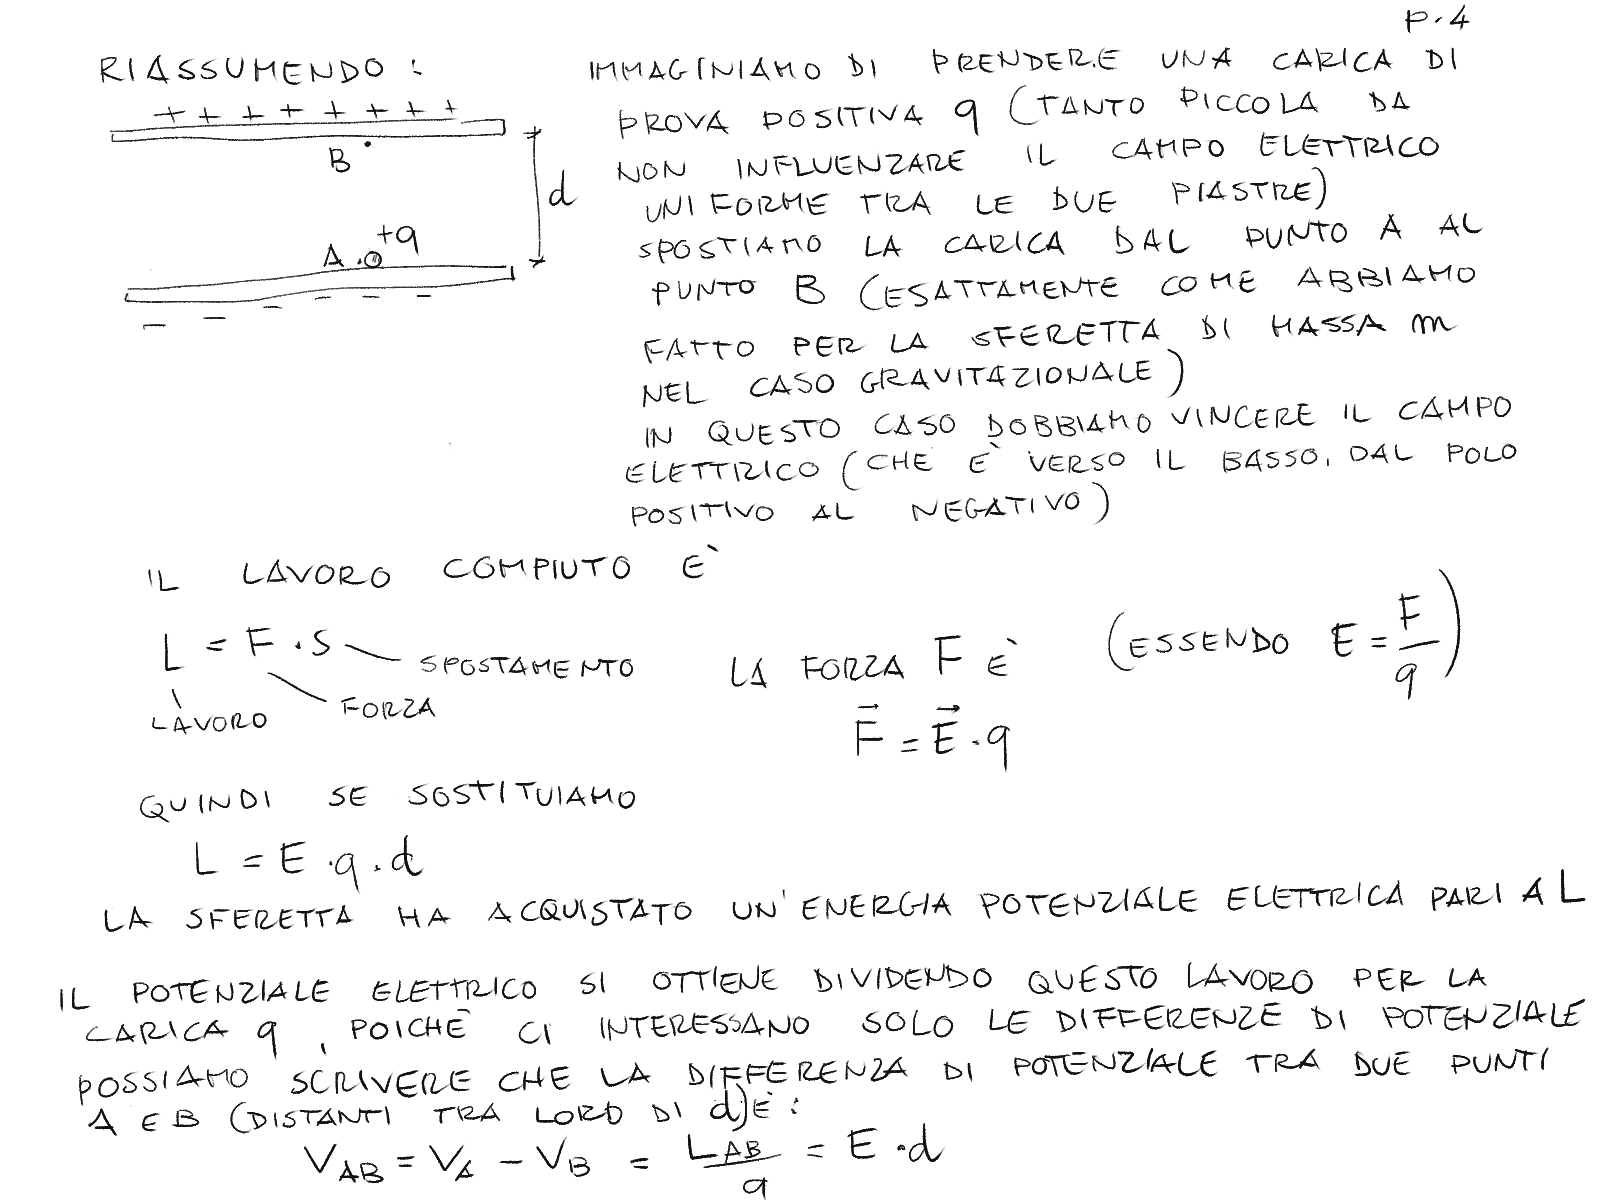 p.4
RIASSUMENDO:
+ + + + + + + +
B
d
+q
A
- - - - -
IMMAGINIAMO DI PRENDERE UNA CARICA DI
PROVA POSITIVA q (TANTO PICCOLA DA
NON INFLUENZARE IL CAMPO ELETTRICO
UNIFORME TRA LE DUE PIASTRE)
SPOSTIAMO LA CARICA DAL PUNTO A AL
PUNTO B (ESATTAMENTE COME ABBIAMO
FATTO PER LA SFERETTA DI MASSA m
NEL CASO GRAVITAZIONALE)
IN QUESTO CASO DOBBIAMO VINCERE IL CAMPO
ELETTRICO (CHE E` VERSO IL BASSO, DAL POLO
POSITIVO AL NEGATIVO)
IL LAVORO COMPIUTO E`
L = F · S
SPOSTAMENTO
FORZA
LAVORO
LA FORZA F È (ESSENDO E = F/q)
F⃗ = E⃗ · q
QUINDI SE SOSTITUIAMO
L = E · q · d
LA SFERETTA HA ACQUISTATO UN'ENERGIA POTENZIALE ELETTRICA PARI A L
IL POTENZIALE ELETTRICO SI OTTIENE DIVIDENDO QUESTO LAVORO PER LA
CARICA q, POICHÈ CI INTERESSANO SOLO LE DIFFERENZE DI POTENZIALE
POSSIAMO SCRIVERE CHE LA DIFFERENZA DI POTENZIALE TRA DUE PUNTI
A E B (DISTANTI TRA LORO DI d) È:
V_AB = V_A - V_B = L_AB/q = E · d